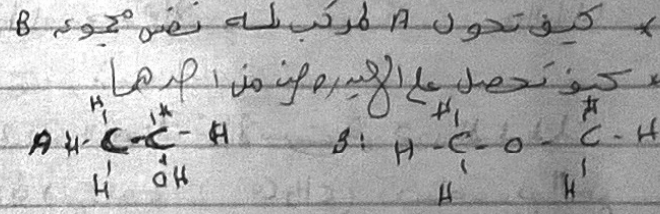 * كيف تحول A لمركب له نفس مجموعة B
* كيف تحصل على الهيدروجين من احدهما
H H H H
A H - C - C - H B: H - C - O - C - H
H OH H H